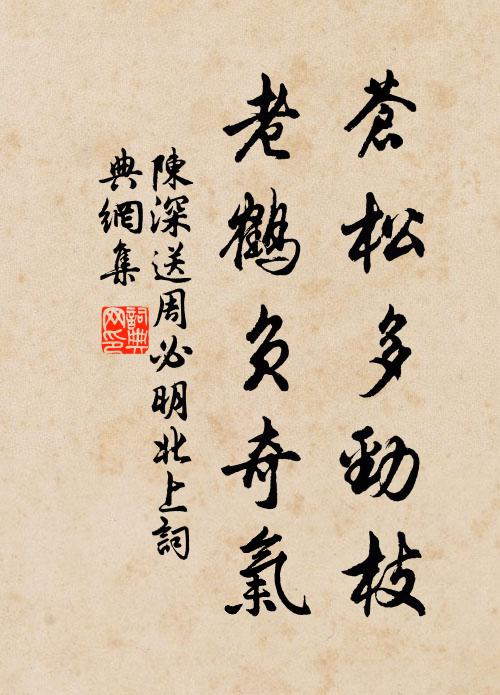 蒼松多勁枝
老鶴負奇氣
陳深送周必明北上詞
典網集
詞典
网印